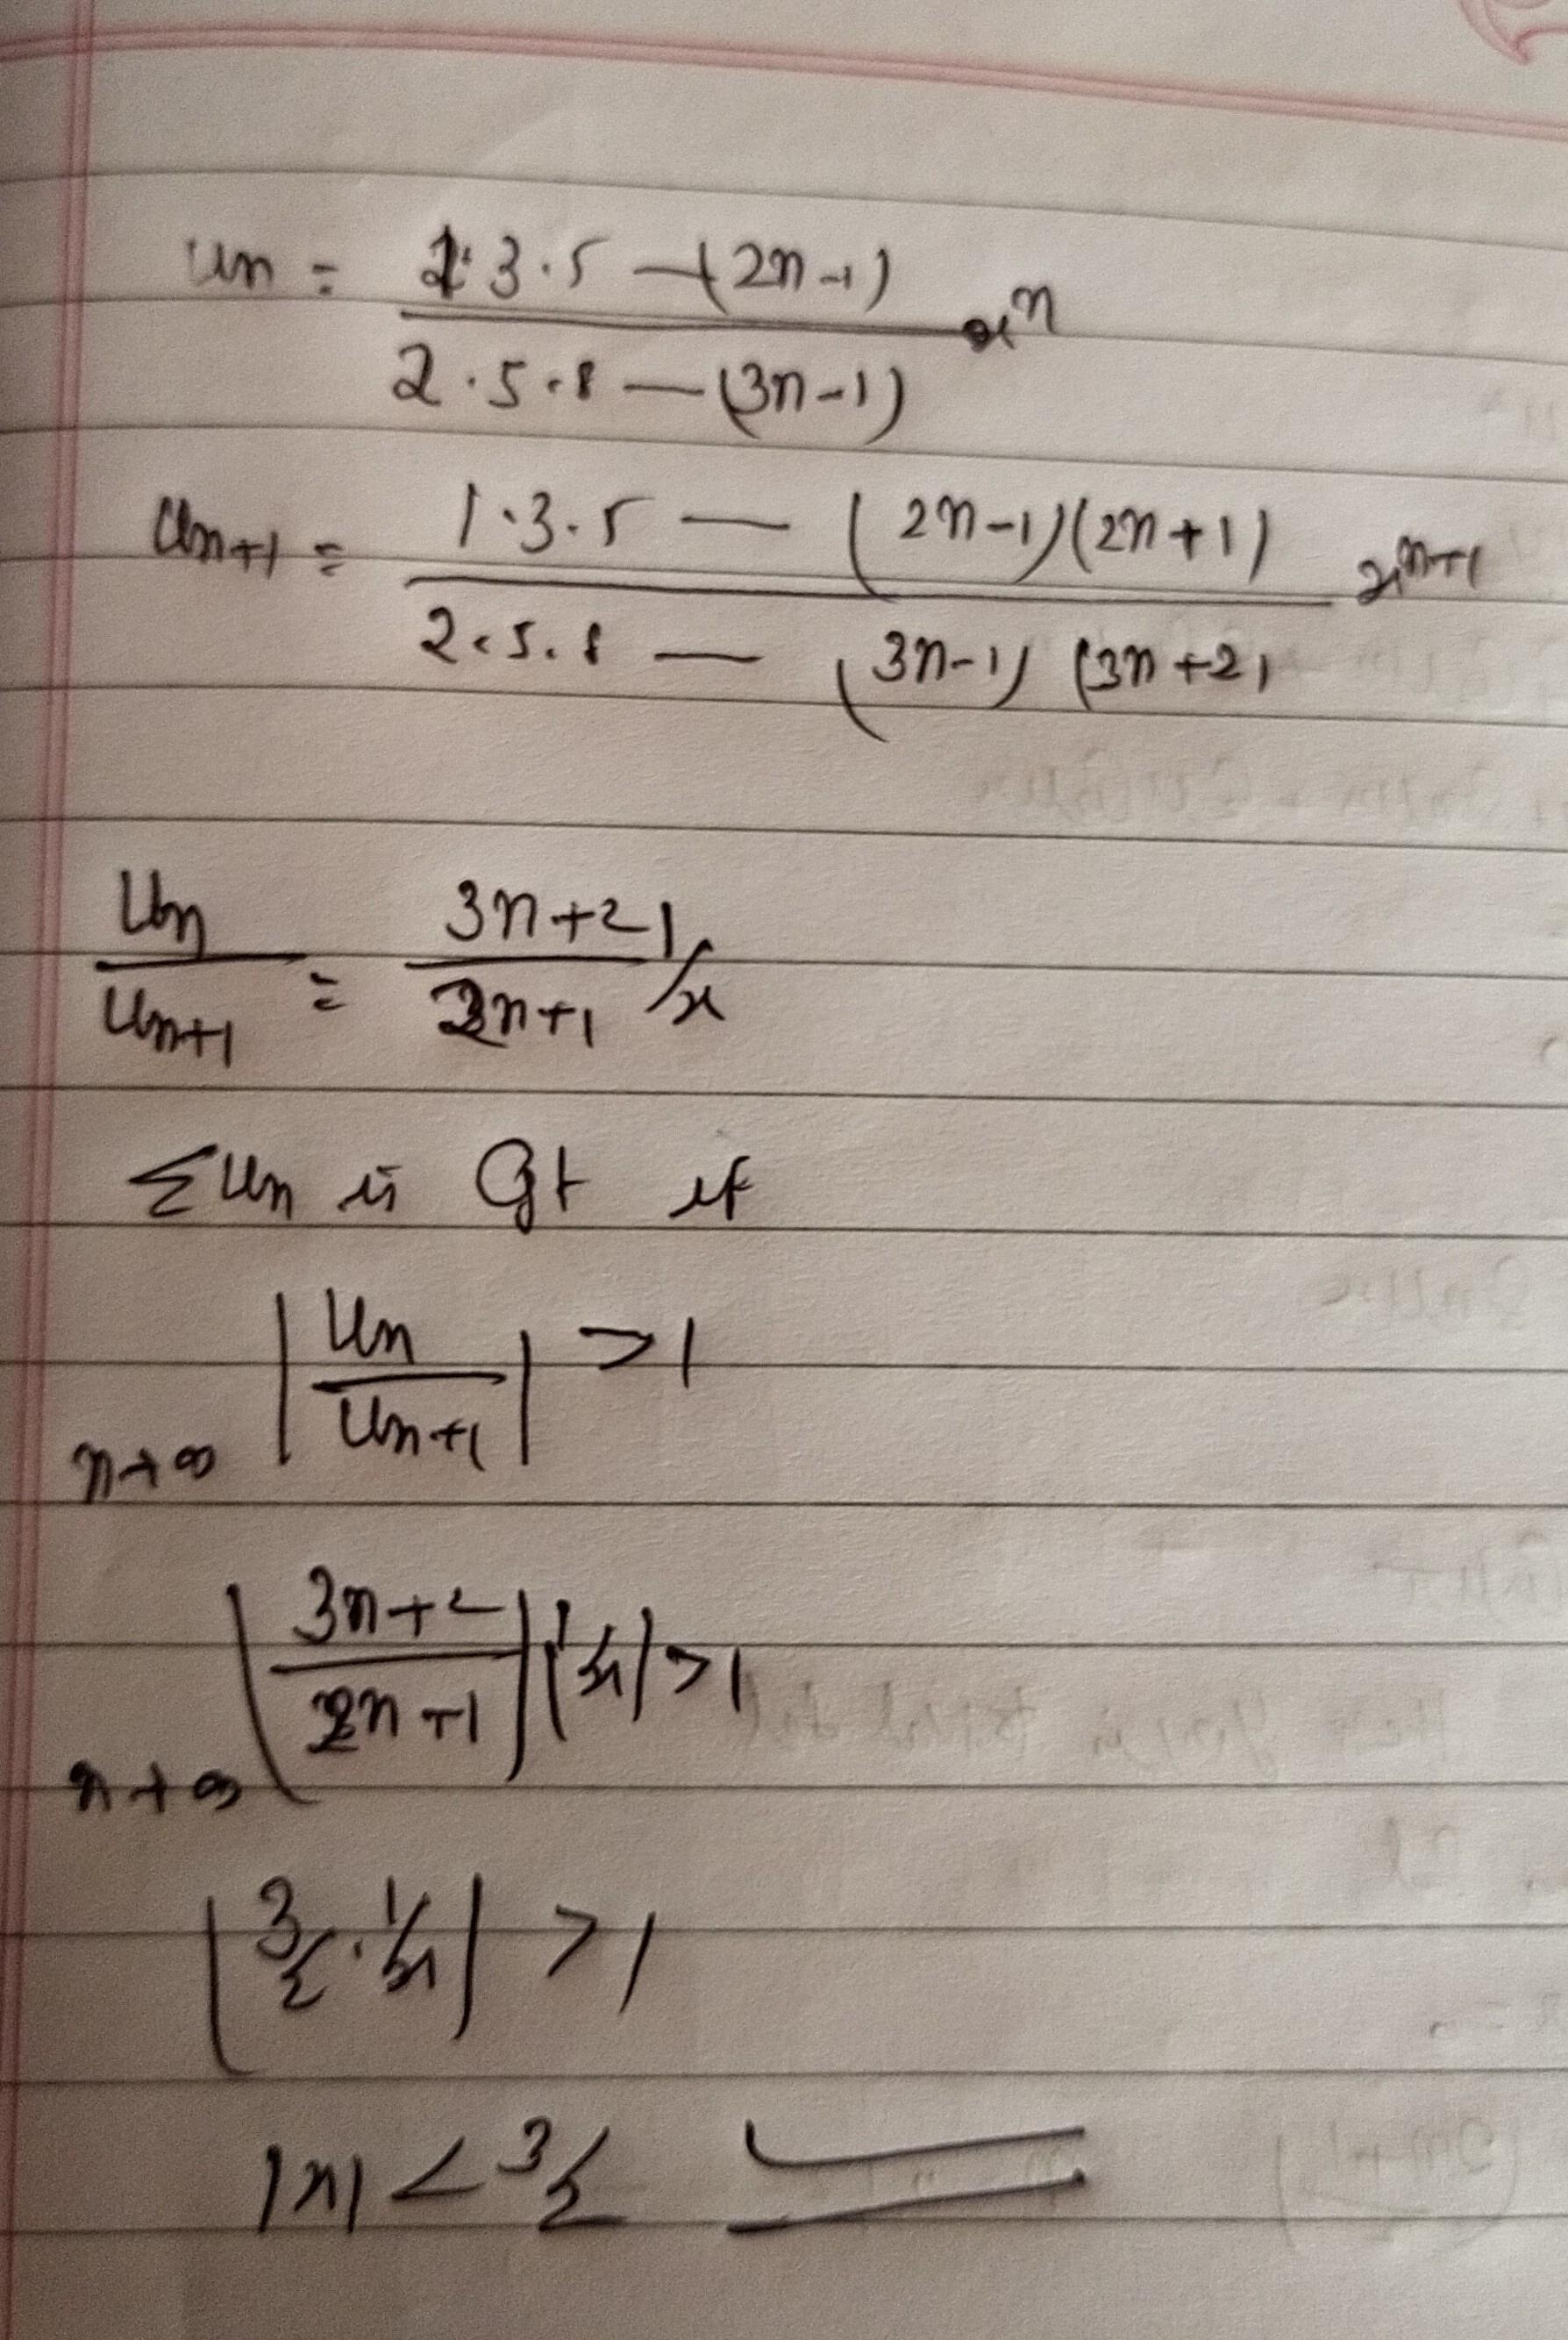 un = 1·3·5 — (2n-1) / 2·5·8 — (3n-1) x^n
Un+1 = 1·3·5 — (2n-1)(2n+1) / 2·5·8 — (3n-1) (3n+2) x^n+1
Un / Un+1 = 3n+2 / 2n+1 1/x
Σun is Cgt if
n→∞ |Un / Un+1| >1
n→∞ |3n+2 / 2n+1| |1/x| >1
|3/2 · 1/x| >1
|x| < 3/2